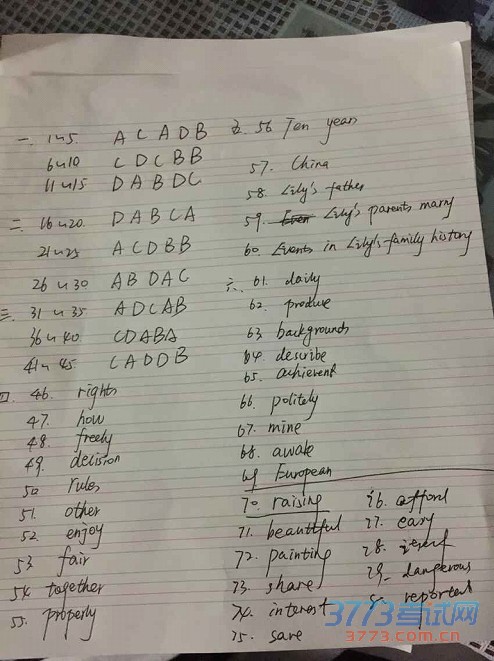 一. 1~5 A C A D B
6~10 C D C B B
11~15 D A B D C
二. 16~20. D A B C A
21~25 A C D B B
26~30 A B D A C
三. 31~35 A D C A B
36~40. C D A B A
41~45. C A D D B
四. 46. rights
47. how
48. freely
49. decision
50 rules
51. other
52. enjoy
53 fair
54. together
55. properly
五. 56 Ten years
57. China
58. Lily's father
59. Lily's parents marry
60. Events in Lily's family history
六. 61. daily
62. produce
63. backgrounds
64. describe
65. achievent
66. politely
67. mine
68. awake
69 European
70. raising
71. beautiful
72. painting
73. share
74. interest
75. save
76. afford
77. easy
78. itself
79. dangerous
80. reported
3773考试网
3773.com.cn